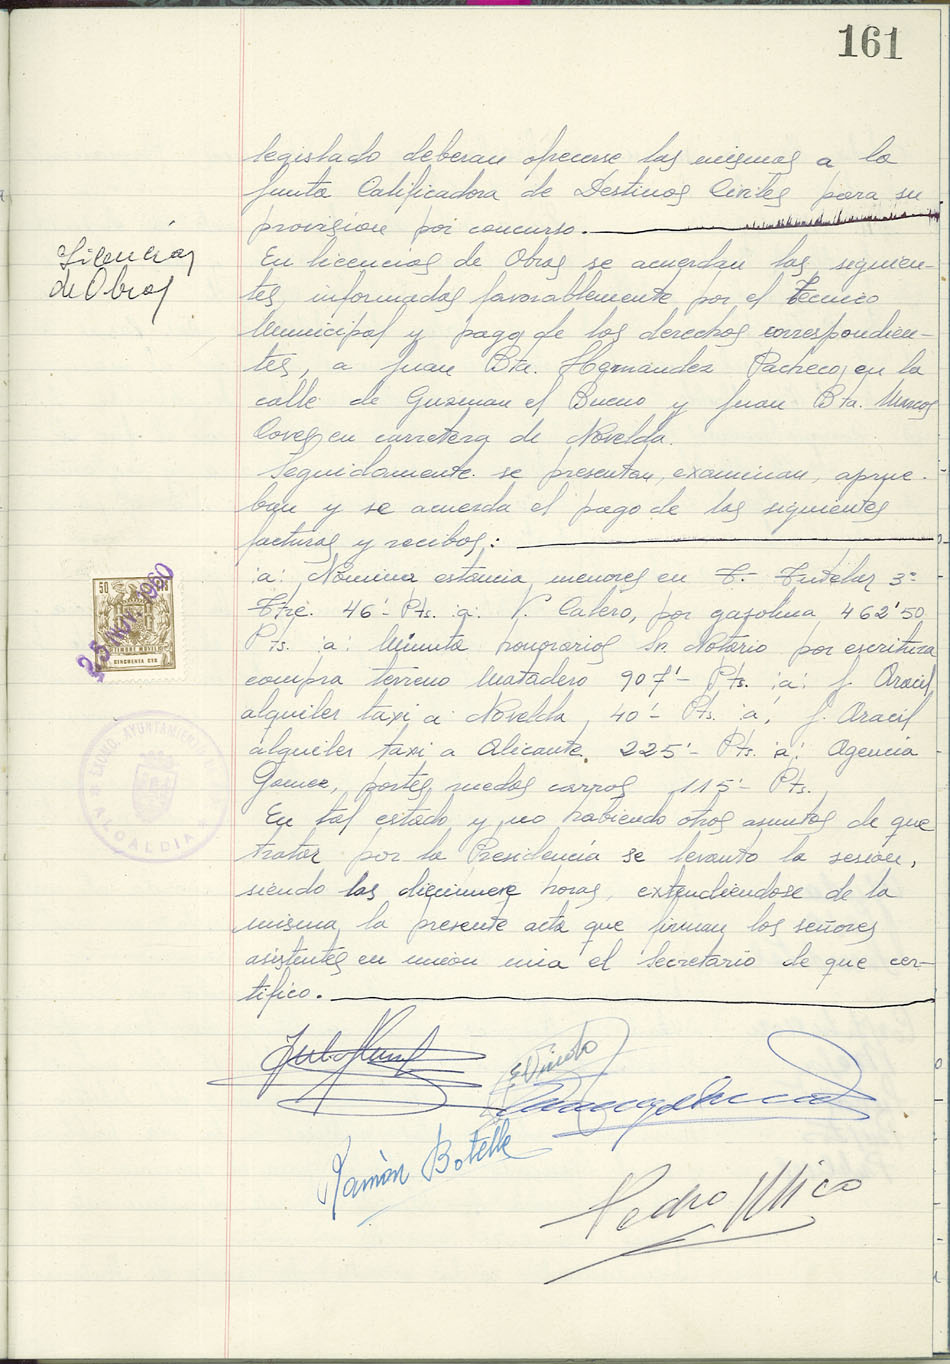 161
legislado deberan ofrecerse las mismas a la
Junta Calificadora de Destinos Civiles para su
provision por concurso.
Licencias
de Obras
En licencias de Obras se acuerdan las siguien-
tes, informadas favorablemente por el Tecnico
Municipal y pago de los derechos correspondien-
tes, a Juan Bta. Hernandez Pacheco, en la
calle de Guzman el Bueno y Juan Bta. Mas
Coves, en carretera de Novelda.
Seguidamente se presentan, examinan, aprue-
ban y se acuerda el pago de las siguientes
facturas y recibos:
:a: Nomina estancia menores en T. Tutelar 3º
Tre. 46'- Pts. :a: V. Calero, por gasolina 462'50
Pts. :a: Minuta honorarios Sr. Notario por escritura
compra terreno Matadero 907'- Pts. :a: J. Aracil,
alquiler taxi a Novelda, 40'- Pts. :a: J. Aracil
alquiler taxi a Alicante. 225'- Pts. :a: Agencia
Gomez, portes ruedas carros 115'- Pts.
En tal estado y no habiendo otros asuntos de que
tratar por la Presidencia se levanto la sesion,
siendo las diecinueve horas, extendiendose de la
misma la presente acta que firman los señores
asistentes en union mia el Secretario de que cer-
tifico.
50
25 NOV. 1960
TIMBRE MOVIL
CINCUENTA CTS
EXCMO. AYUNTAMIENTO
ALCALDIA
Ramón Botella
Pedro Mico